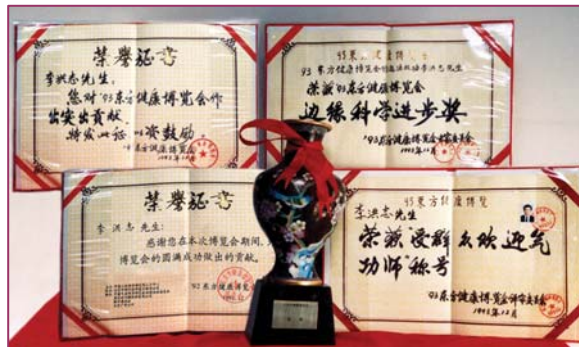 荣誉证书
李洪志先生:
您对'93东方健康博览会作
出突出贡献,
特发此证 以资鼓励。
'93东方健康博览会
1993年12月
93 东方健康博览会
荣获'93东方健康博览会
边缘科学进步奖
'93东方健康博览会评审委员会
1993年12月
荣誉证书
李洪志 先生:
感谢您在本次博览会期间,
博览会的圆满成功做出的贡献。
'93东方健康博览
93东方健康博览
李洪志先生
荣获"受群众欢迎气
功师"称号
'93东方健康博览会评审委员会
1993年12月